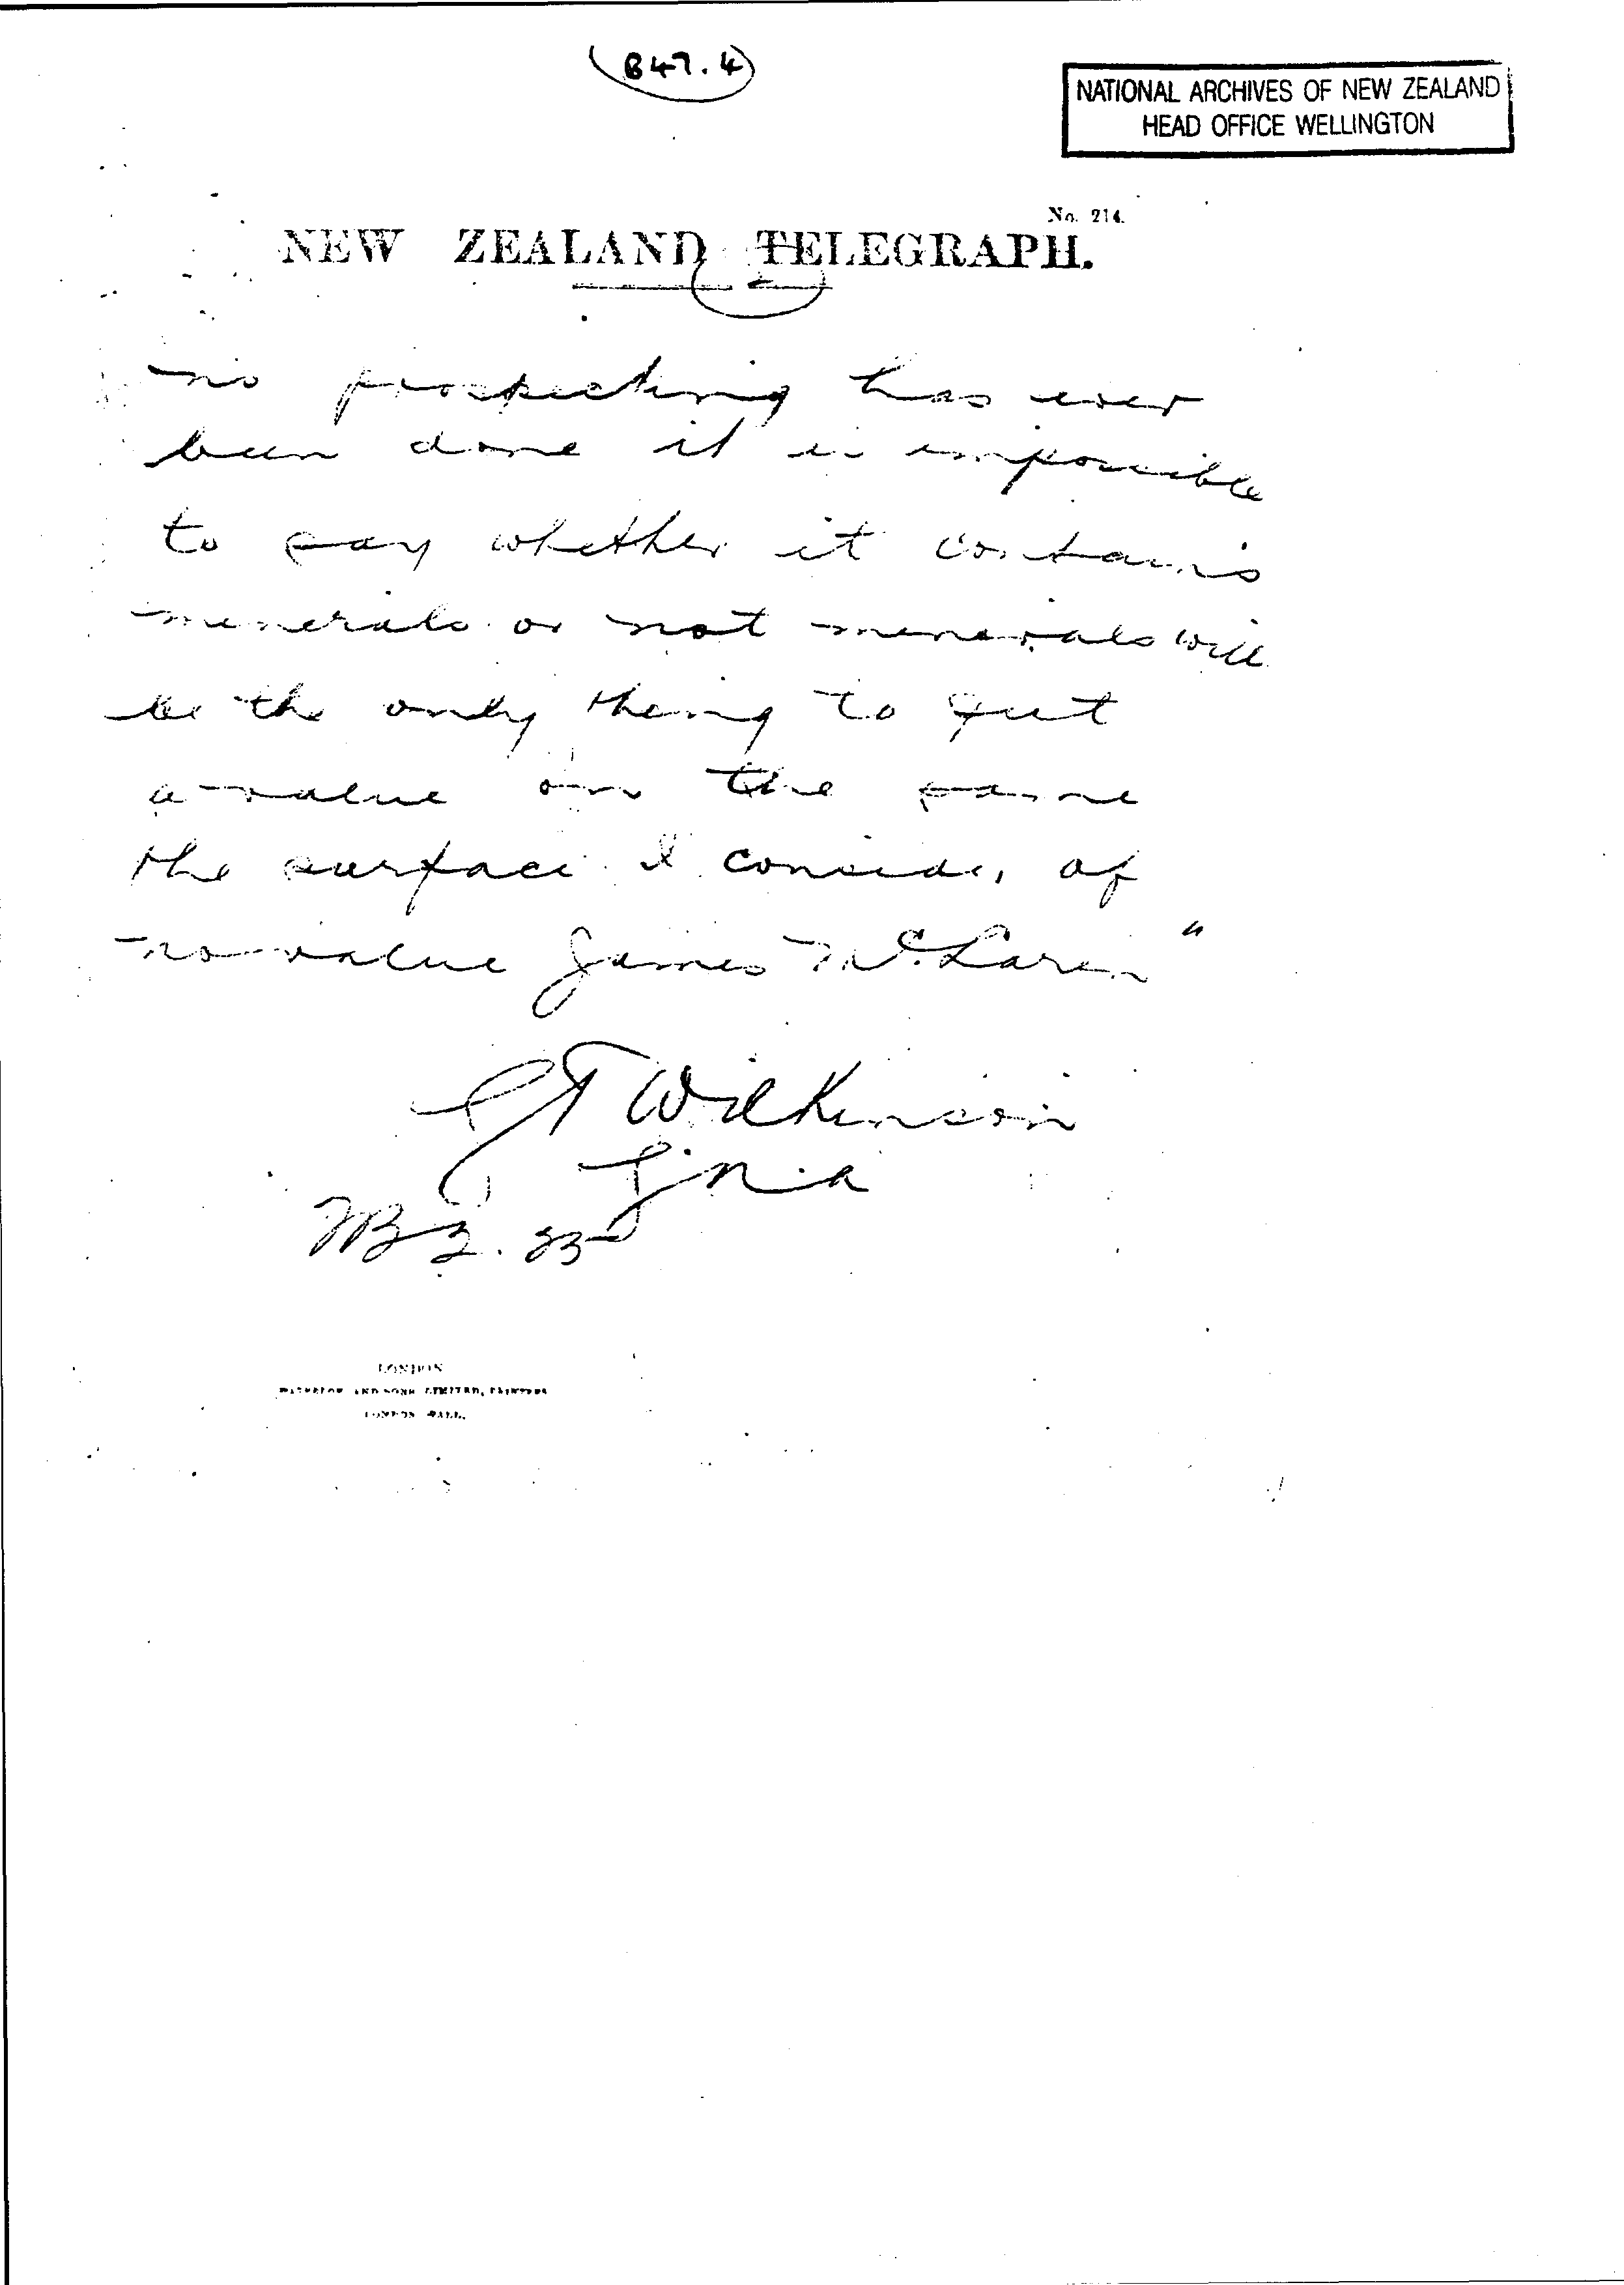 (B47.4)
NATIONAL ARCHIVES OF NEW ZEALAND
HEAD OFFICE WELLINGTON
No. 214.
NEW ZEALAND TELEGRAPH.
2
no prospecting has ever
been done it is impossible
to say whether it contains
minerals or not minerals will
be the only thing to put
a value on the same
the surface I consider of
no value James McLaren"
GT Wilkinson
LONDON
WATERLOW AND SONS LIMITED, PRINTERS
LONDON WALL.